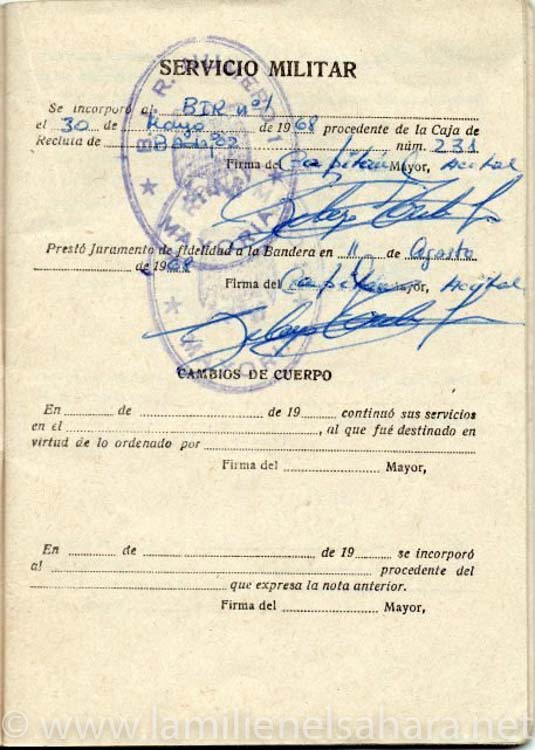 SERVICIO MILITAR
Se incorporó al BIR nº1
el 30 de Mayo de 1968 procedente de la Caja de
Recluta de núm. 231
Firma del Capitán Mayor, Acctal
Prestó Juramento de fidelidad a la Bandera en 11 de Agosto
de 1968
Firma del Capitán Mayor, Acctal
CAMBIOS DE CUERPO
En de de 19 continuó sus servicios
en el , al que fué destinado en
virtud de lo ordenado por
Firma del Mayor,
En de de 19 se incorporó
al procedente del
que expresa la nota anterior.
Firma del Mayor,
B. I. R. NUMERO 1
MAYORIA
MAYORIA
© www.lamilienelsahara.net